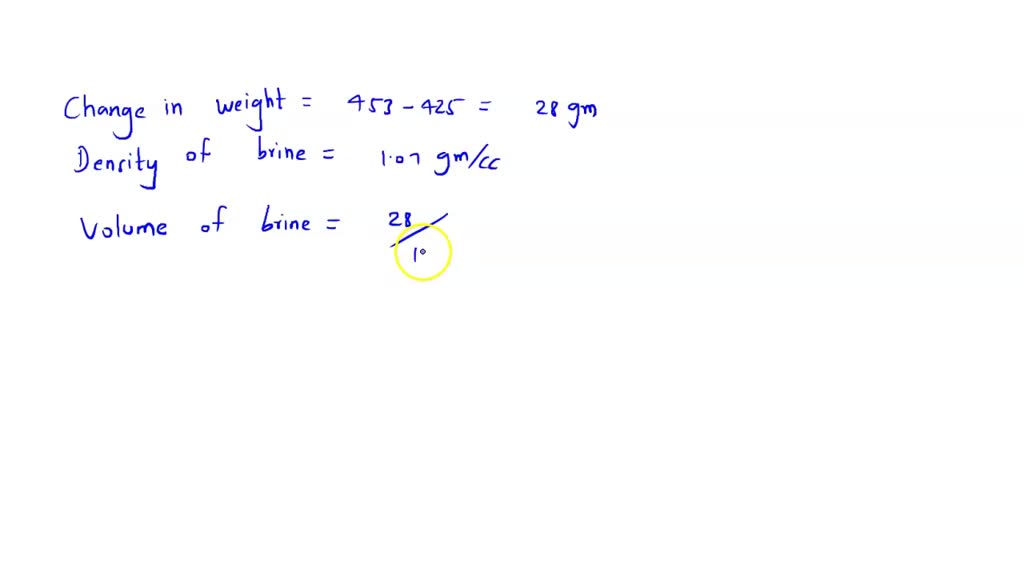 Change in weight = 453 - 425 = 28 gm
Density of brine = 1.07 gm/cc
Volume of brine = 28/10